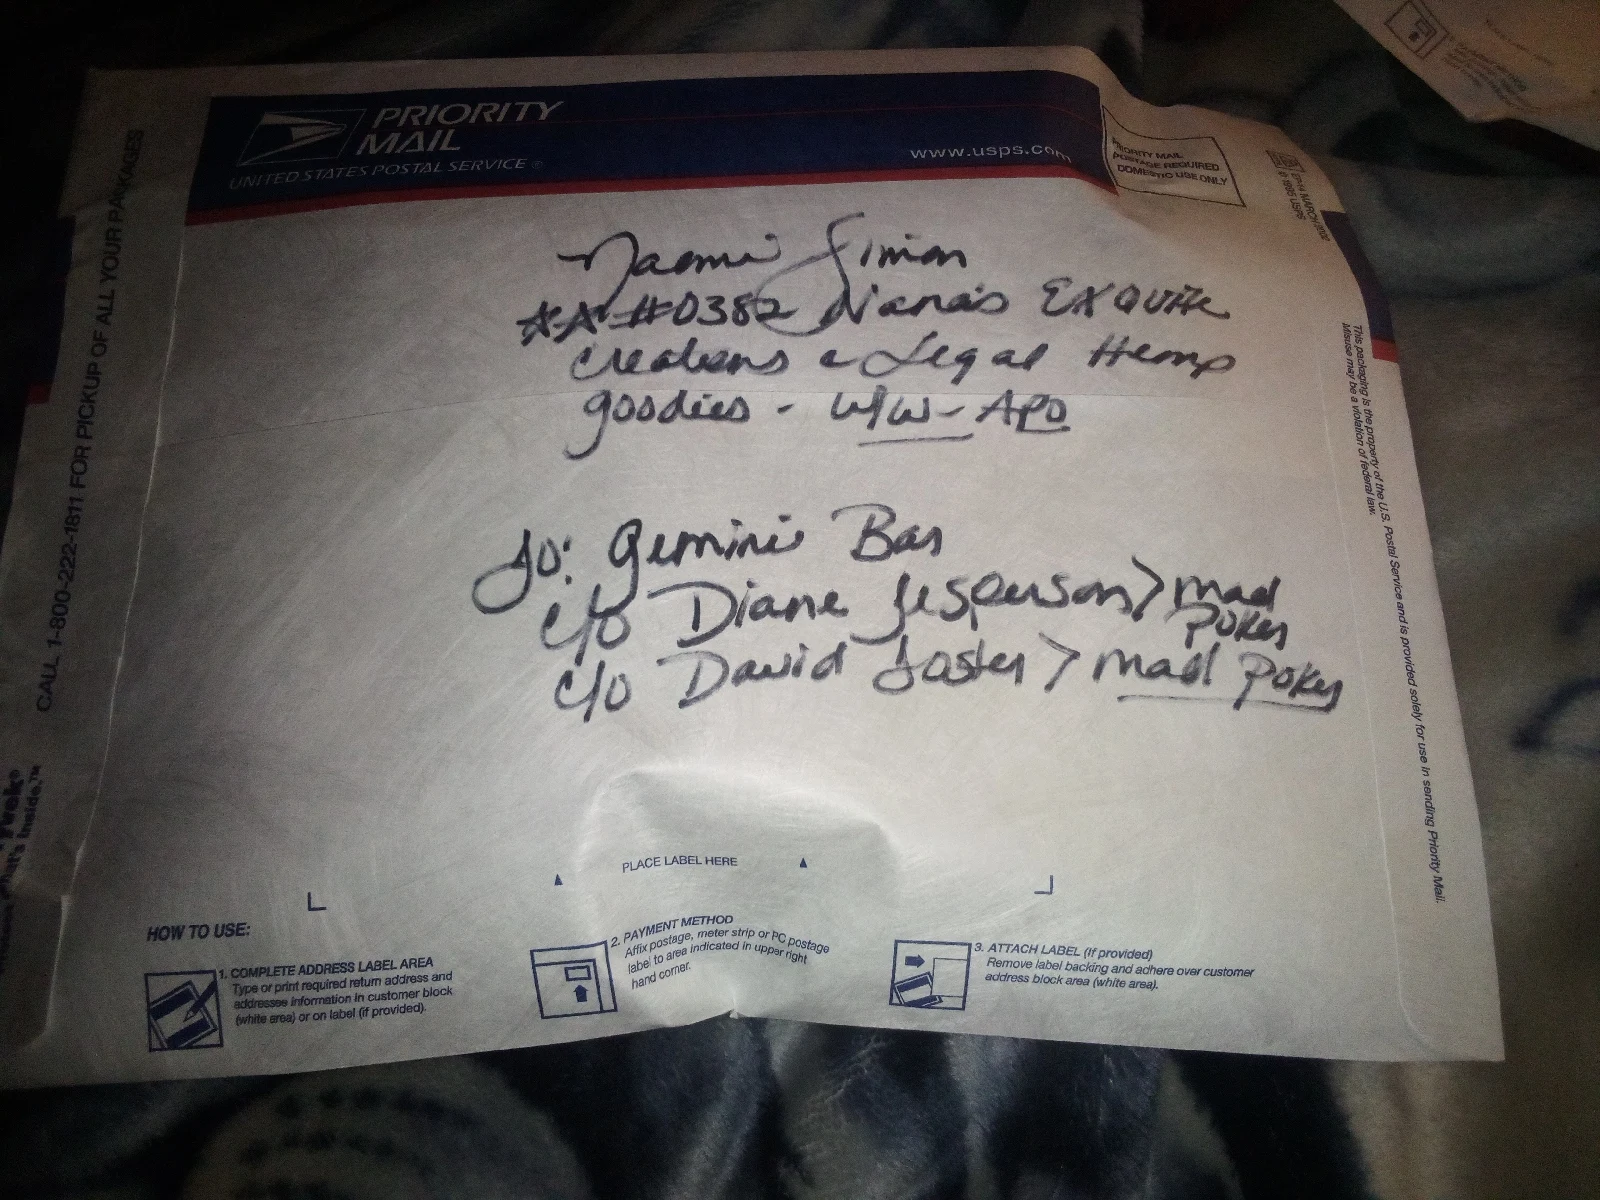 PRIORITY
MAIL
UNITED STATES POSTAL SERVICE ®
www.usps.com
PRIORITY MAIL
POSTAGE REQUIRED
DOMESTIC USE ONLY
© 1995 USPS
CALL 1-800-222-1811 FOR PICKUP OF ALL YOUR PACKAGES
Naomi Simon
#0382 Nana's EXQUITE
Creations & Legal Hemp
goodies - W/W - APO
To: Gemini Bar
c/o Diane Jesperson > mad
Poker
c/o David Foster > mad Poker
This packaging is the property of the U.S. Postal Service and is provided solely for use in sending Priority Mail.
Misuse may be a violation of federal law.
PLACE LABEL HERE
HOW TO USE:
1. COMPLETE ADDRESS LABEL AREA
Type or print required return address and
addressee information in customer block
(white area) or on label (if provided).
2. PAYMENT METHOD
Affix postage, meter strip or PC postage
label to area indicated in upper right
hand corner.
3. ATTACH LABEL (if provided)
Remove label backing and adhere over customer
address block area (white area).